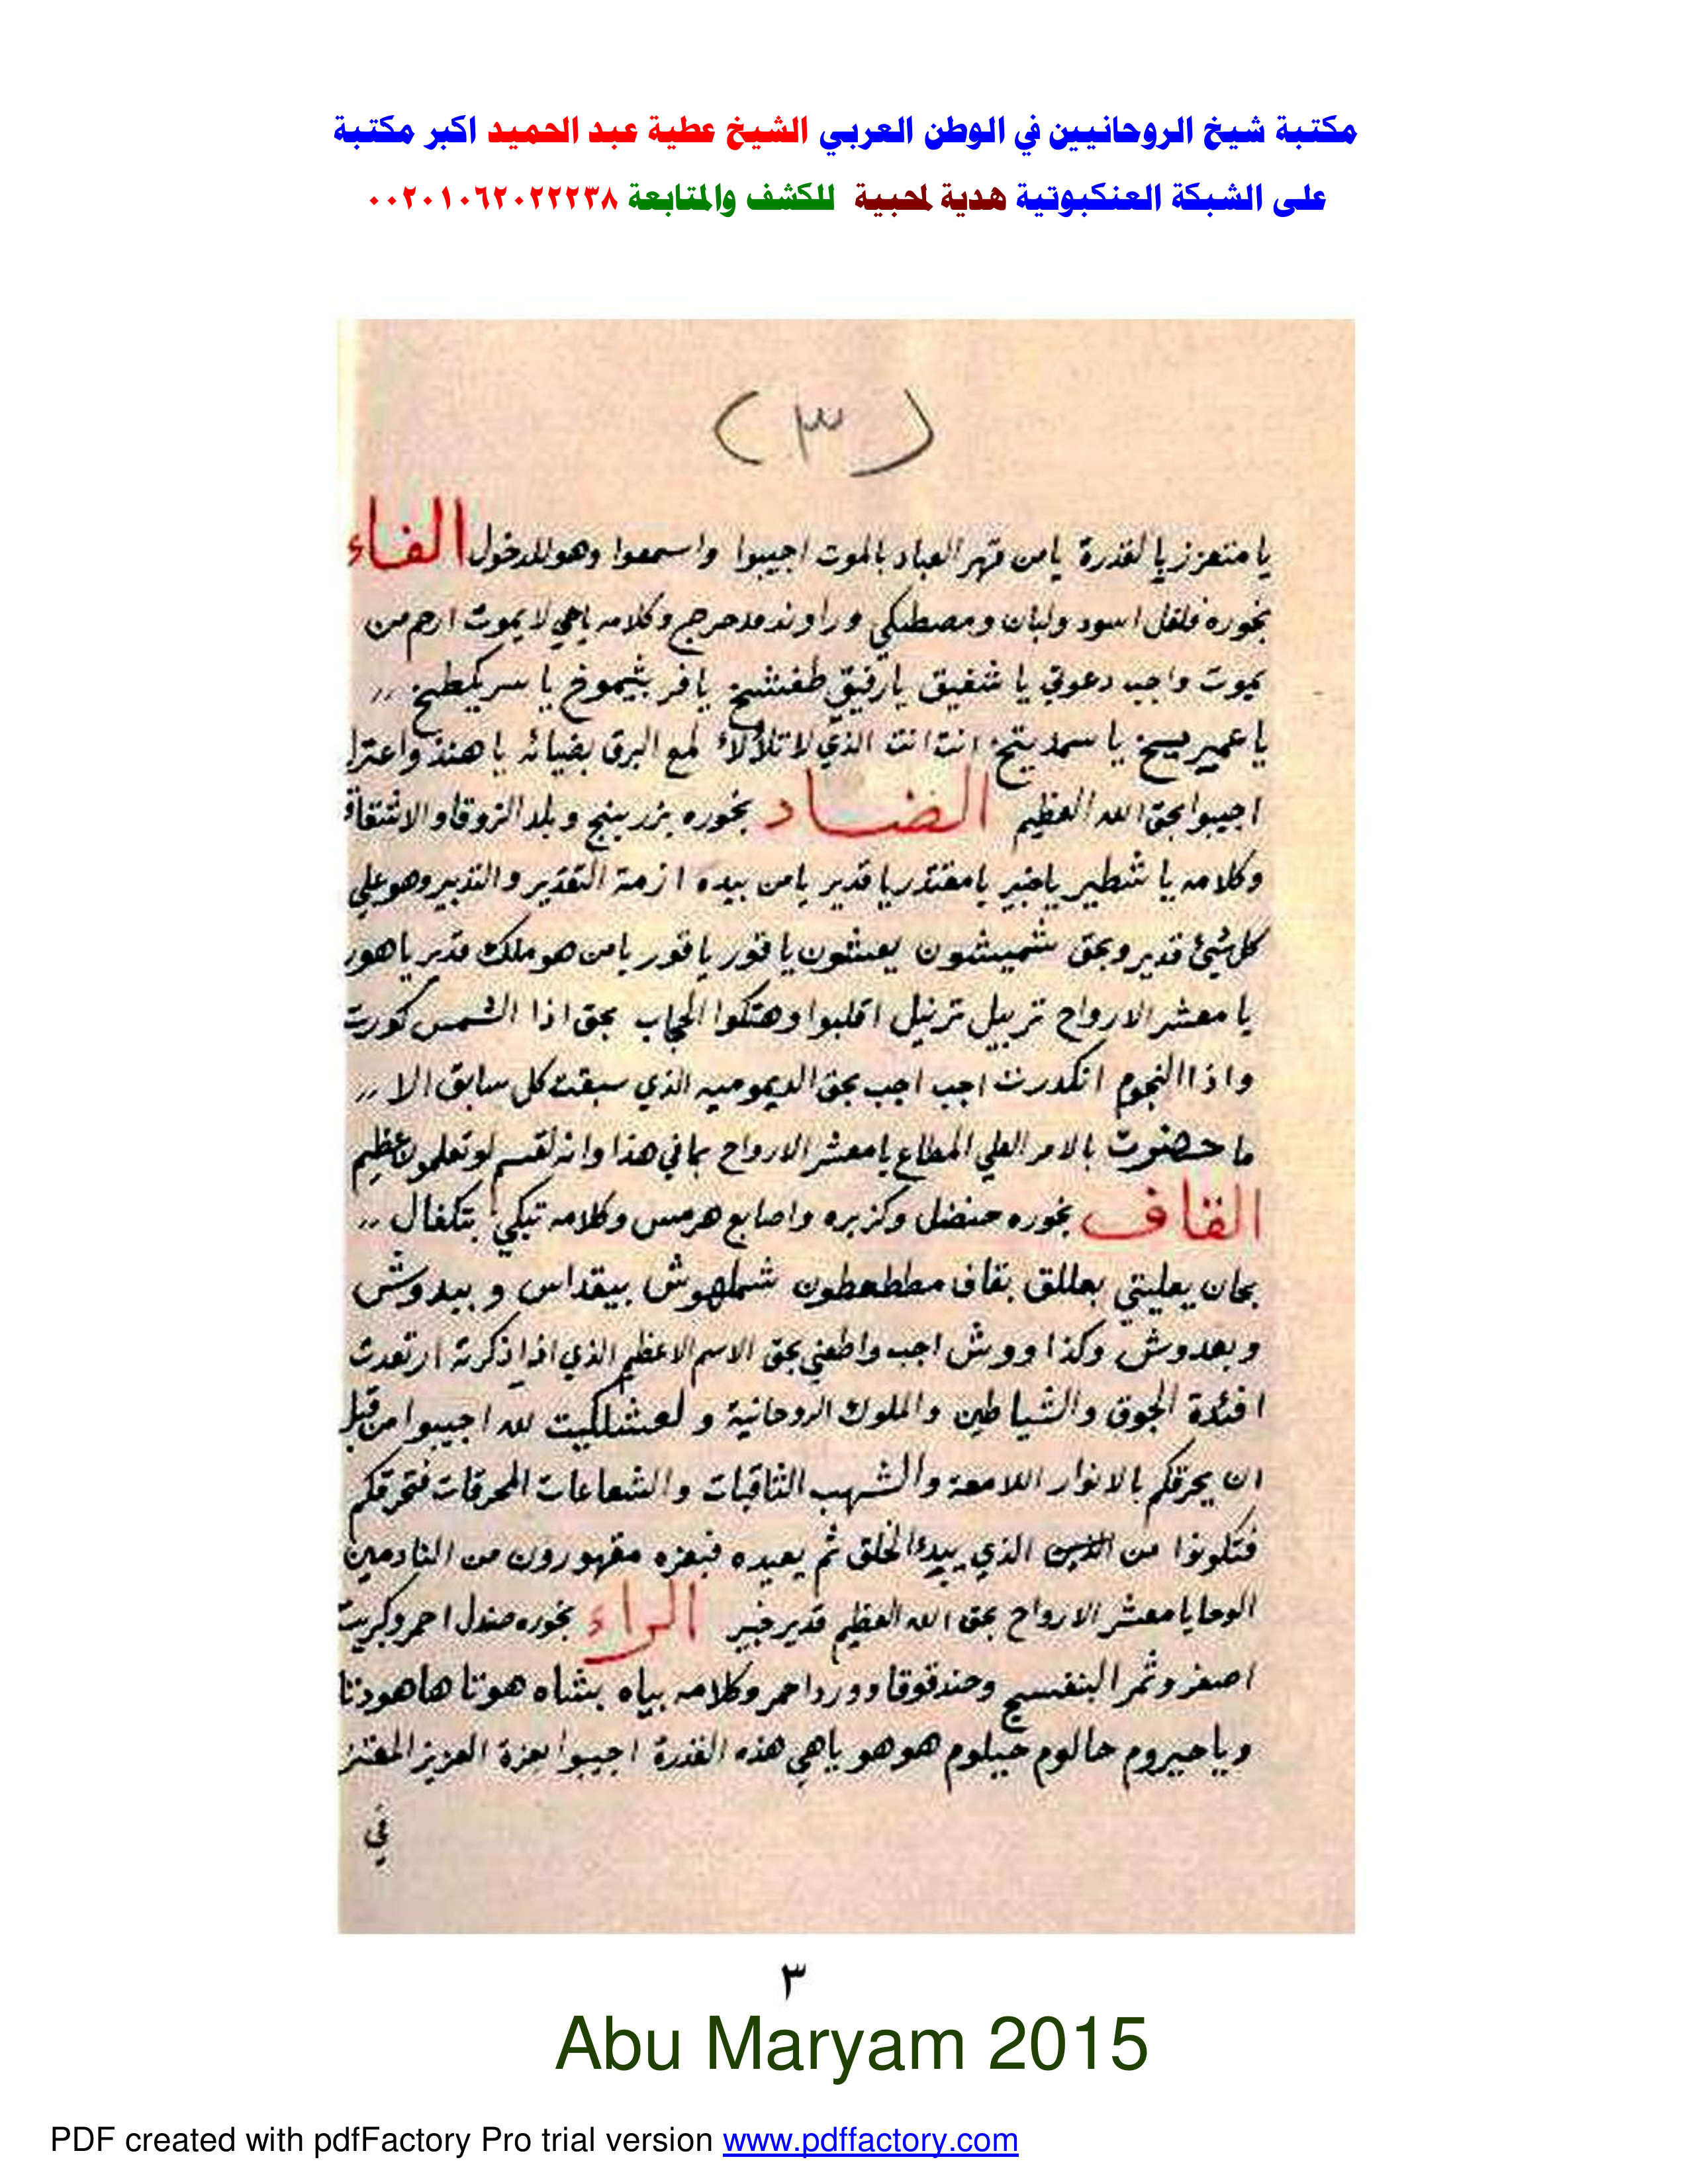 مكتبة شيخ الروحانيين في الوطن العربي الشيخ عطية عبد الحميد اكبر مكتبة
على الشبكة العنكبوتية هدية لمحبية للكشف والمتابعة ٠٠٢٠١٠٦٢٠٢٢٢٣٨
(٣)
يا متعزز يا لقدرة يا من قهر العباد بالموت اجيبوا واسمعوا وهو للدخول الفاء
بخوره فلفل اسود ولبان ومصطكي وراوند مدحرج وكلامه يا حي لا يموت ارحم من
يموت واجب دعوتي يا شفيق يا رفيق طفشيخ يا فر بثيموخ يا سر كيطيخ ,,
يا عميريسيخ يا سمديتخ انت انت الذي لا تلألأ لمع البرق بضيائه يا هند واعترا
اجيبوا بحق الله العظيم الضاد بخوره بزر بينج وبلد الزوقا والاشتقاق
وكلامه يا شطير يا خبير يا مقتدر يا قدير يا من بيده ازمة التقدير والتدبير وهو على
كل شيئ قدير وبحق شميشون يعشون يا قور يا قور يا من هو ملك قدير يا هور
يا معشر الارواح تربيل ترنيل اقلبوا وهتكوا الحجاب بحق اذا الشمس كورت
واذا النجوم انكدرت اجب اجب بحق الديموميه الذي سبقت كل سابق الا ,,
ما حضرت بالامر العلي المطاع يا معشر الارواح بما في هذا وانه لقسم لو تعلمون عظيم
القاف بخوره حنضل وكزبره واصابع هرمس وكلامه تبكي بتكفال ,,
بحان يعليتي بعللق بقاف مططعطون شملهوش بيقداس وبيدوش
وبعدوش وكذا ووش اجب واطعني بحق الاسم الاعظم الذي اذا ذكرته ارتعدت
افئدة الجوق والشياطين والملوك الروحانية ولعشلكيت لله اجيبوا من قبل
ان يحرقكم بالانوار اللامعة والشهب الثاقبات والشعاعات المحرقات فتحرقكم
فتكونوا من الذي يبدء الخلق ثم يعيده فبعزه مقهورون من النادمين
الوحا يا معشر الارواح بحق الله العظيم قدير خبير الراء بخوره صندل احمر وكبريت
اصفر وثمر البنفسج وحندقوقا وورد احمر وكلامه بياه بشاه هوتا هاهودتا
ويا حيروم حالوم حيلوم هو هو يا هي هذه القدرة اجيبوا بعزة العزيز المعتز
في
٣
Abu Maryam 2015
PDF created with pdfFactory Pro trial version www.pdffactory.com